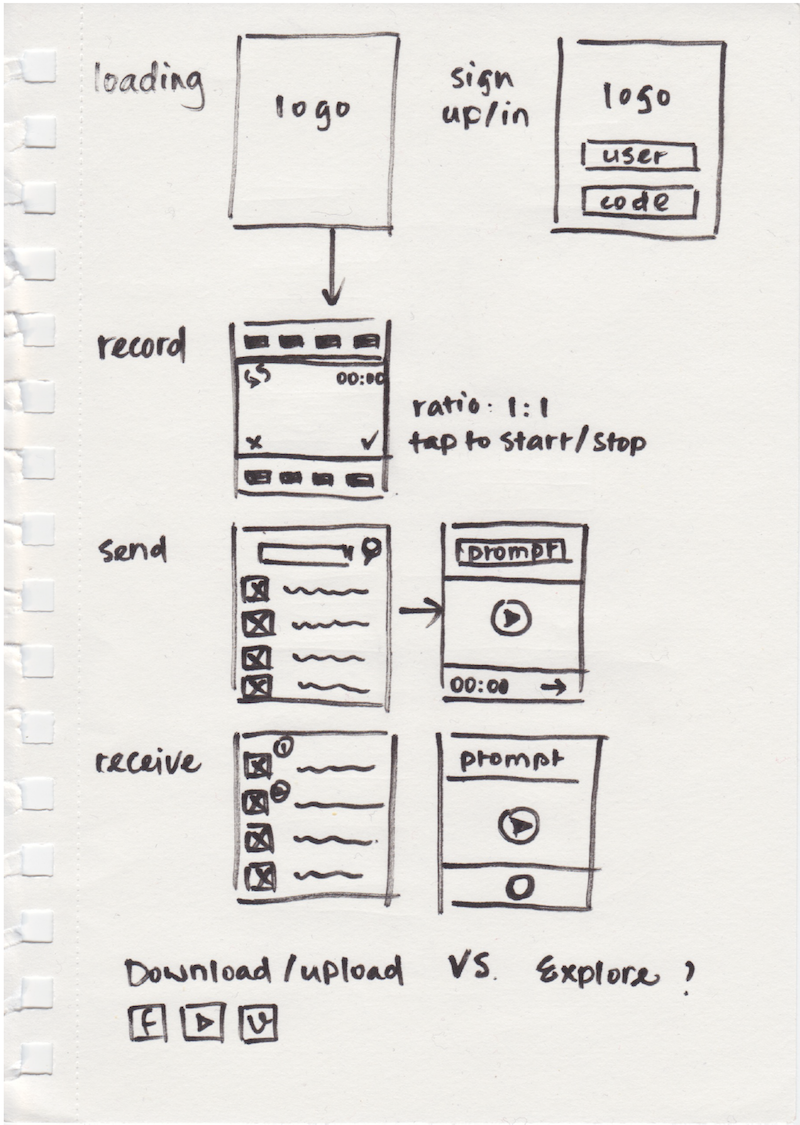 loading
logo
sign
up/in
logo
user
code
record
00:00
ratio: 1:1
tap to start/stop
send
prompt
00:00
receive
1
2
prompt
Download/upload VS. Explore?
f
v